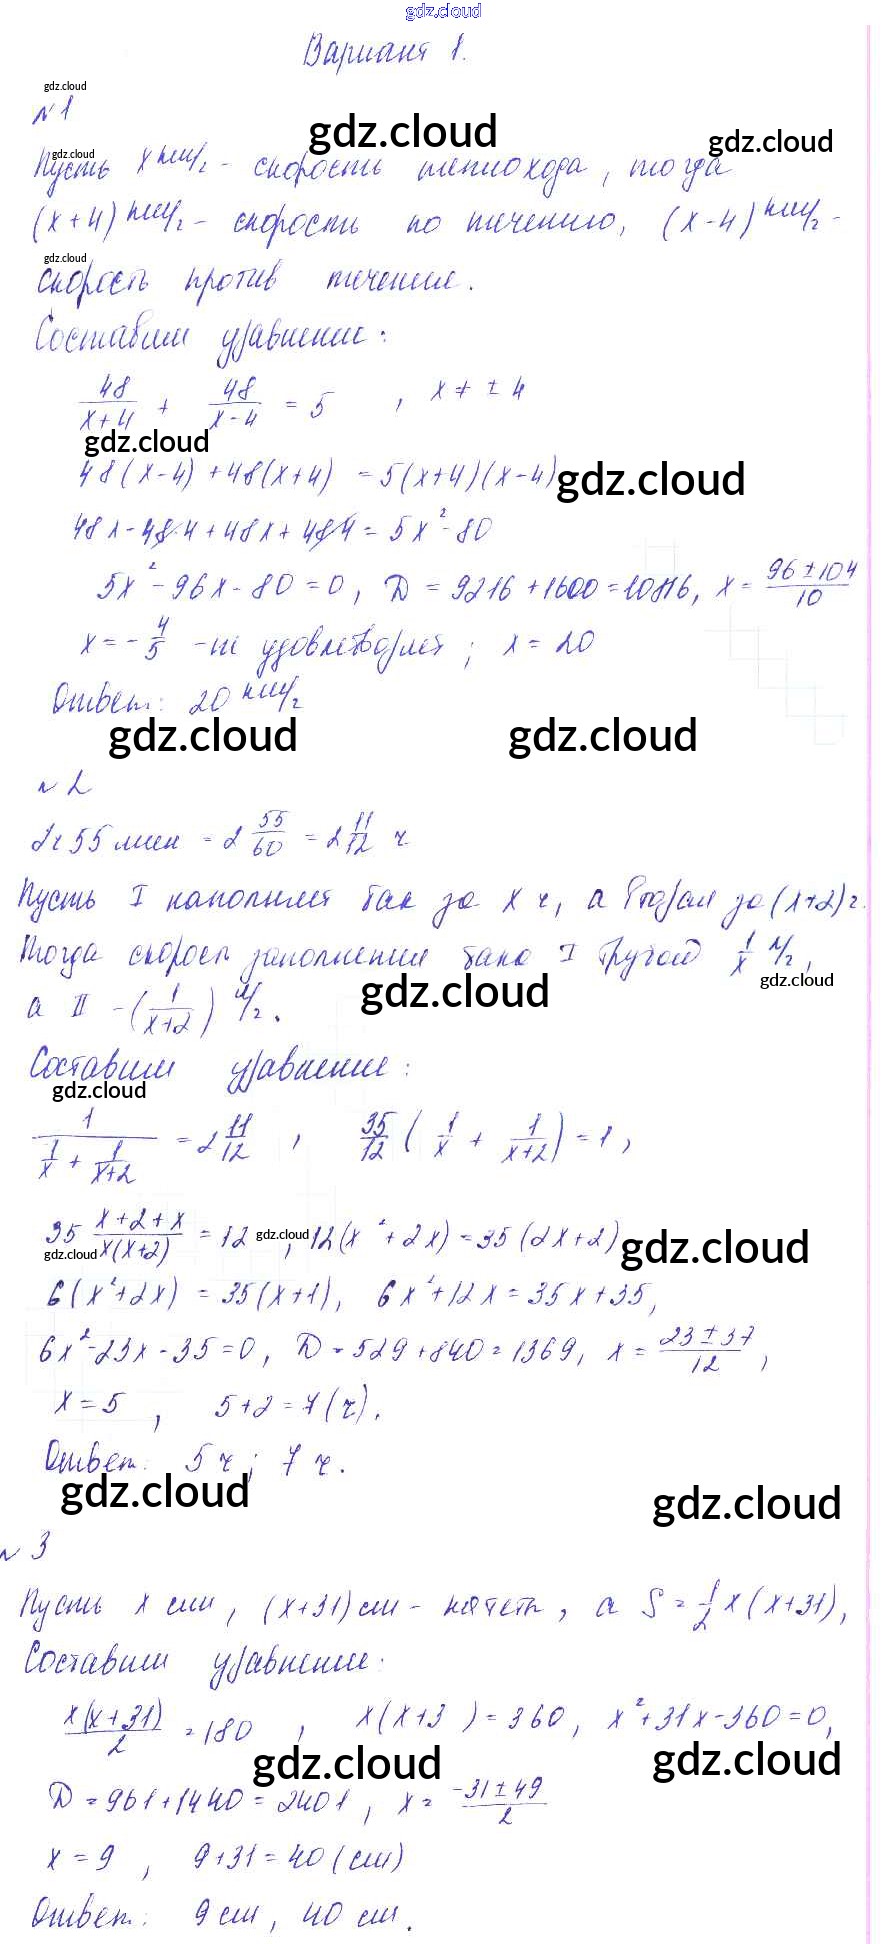 gdz.cloud
Вариант 1.
gdz.cloud
№1
gdz.cloud gdz.cloud
gdz.cloud
Пусть x км/ч - скорость теплохода, тогда
(x+4) км/ч - скорость по течению, (x-4) км/ч -
gdz.cloud
скорость против течение.
Составим уравнение:
48/(x+4) + 48/(x-4) = 5 , x ≠ ± 4
gdz.cloud
48(x-4) + 48(x+4) = 5(x+4)(x-4) gdz.cloud
48x - 48·4 + 48x + 48·4 = 5x² - 80
5x² - 96x - 80 = 0, D = 9216 + 1600 = 10816, x = (96 ± 104)/10
x = -4/5 - не удовлетворяет; x = 20
Ответ: 20 км/ч
gdz.cloud gdz.cloud
№2
2ч 55 мин = 2 55/60 = 2 11/12 ч
Пусть I наполняет бак за x ч, а вторая за (x+2) ч.
Тогда скорость заполнения бака I трубой 1/x л/ч,
gdz.cloud
а II - (1/(x+2)) л/ч.
gdz.cloud
Составим уравнение:
gdz.cloud
1/(1/x + 1/(x+2)) = 2 11/12 , 35/12 (1/x + 1/(x+2)) = 1,
35 (x+2+x)/(x(x+2)) = 12 , 12(x² + 2x) = 35(2x+2)
gdz.cloud gdz.cloud gdz.cloud
6(x²+2x) = 35(x+1), 6x² + 12x = 35x + 35,
6x² - 23x - 35 = 0, D = 529 + 840 = 1369, x = (23 ± 37)/12 ,
x = 5 , 5+2 = 7 (ч).
Ответ: 5 ч; 7 ч.
gdz.cloud gdz.cloud
№3
Пусть x см, (x+31) см - катеты, а S = 1/2 x(x+31),
Составим уравнение:
x(x+31)/2 = 180 , x(x+3 ) = 360, x² + 31x - 360 = 0,
gdz.cloud gdz.cloud
D = 961 + 1440 = 2401, x = (-31 ± 49)/2
x = 9 , 9+31 = 40 (см)
Ответ: 9 см, 40 см.